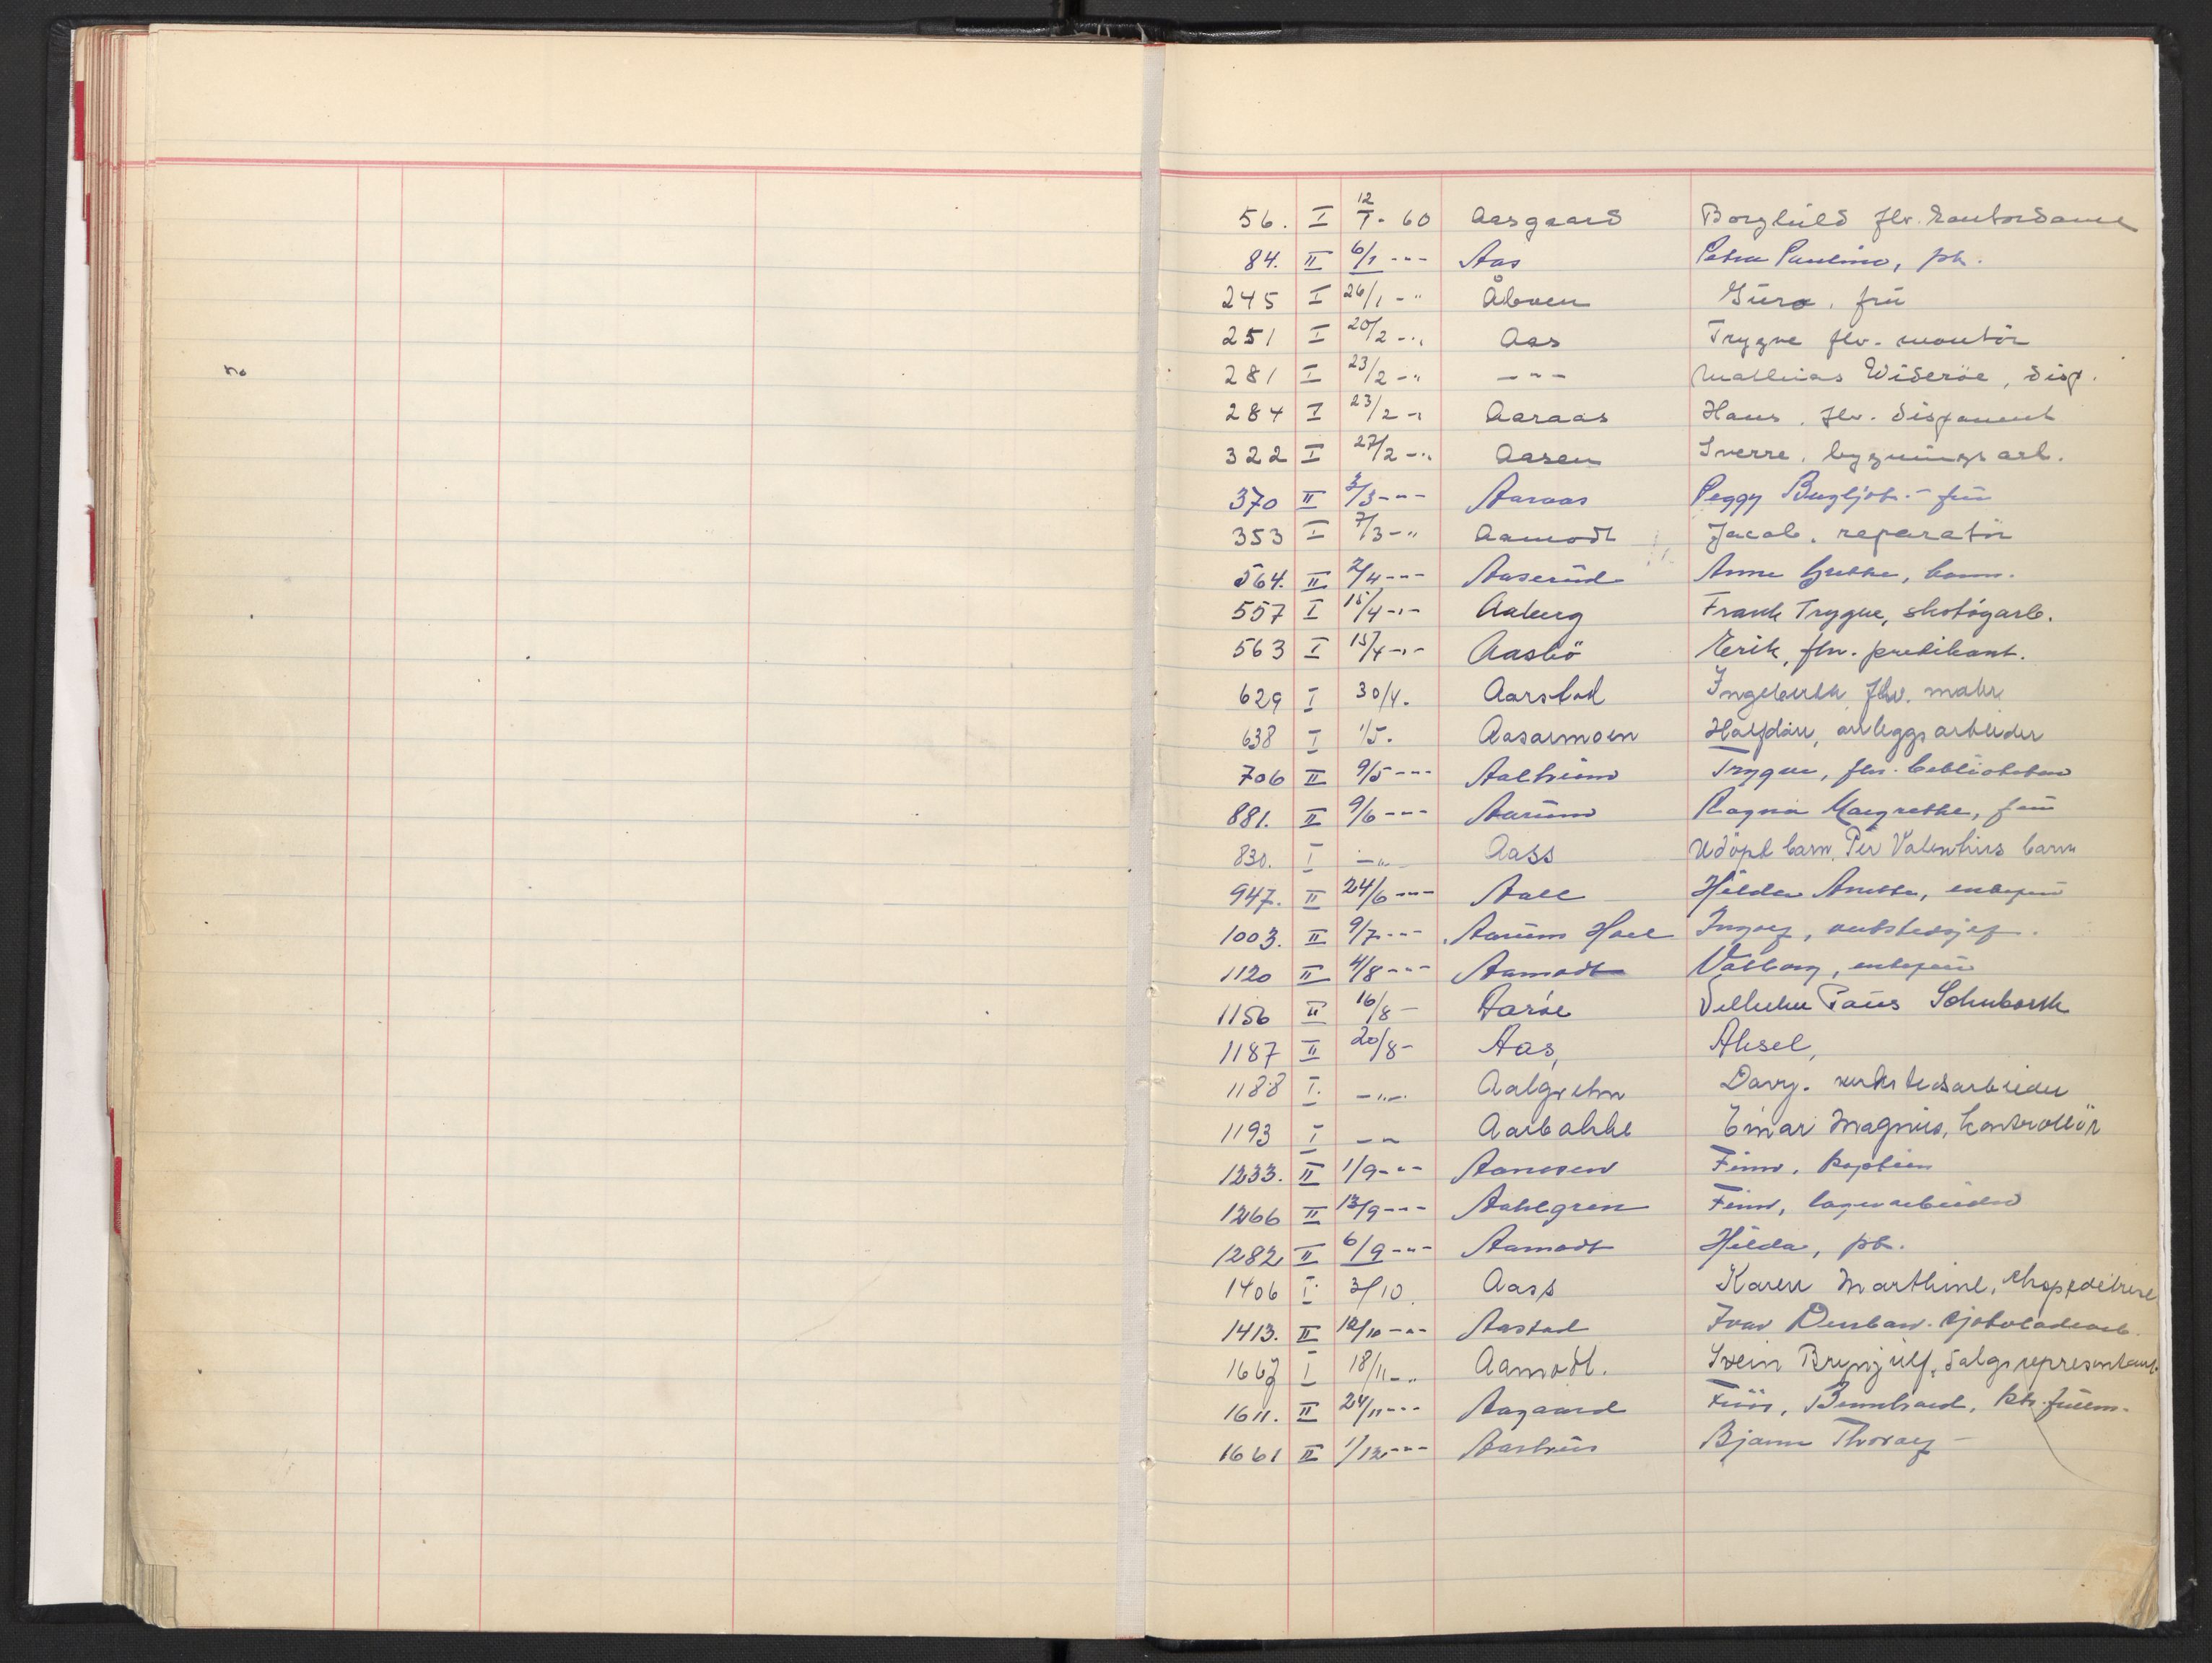 56. I 12/1- 60 Aasgaard Borghild flv. kontordame
84. II 6/1 -"- Aas Petra Pauline, pk.
245 I 26/1 -" Åbven Guro, frü
251 I 20/2 -" Aas Trygve flv. montör
no
281 I 23/2 -" -"- Mathias Wideröe, disp.
284 I 23/2 -" Aaraas Hans, flv. disponent
322 I 27/2 -" Aasen Sverre, bygningsarb.
370 II 3/3 -"- Aaraas Peggy frü
353 I 7/3 -" Aamodt Jacob, reparatör
564. II 2/4 -"- Aaserüd Anne Grethe, barn.
557 I 15/4 -"- Aaberg Frank Trygve, skotøyarb.
563 I 15/4 -"- Aasbö Erik, flv. predikant.
629 I 30/4. Aarstad Ingebertk flv. maler
638 I 1/5. Aasarmoen Halfdan, anleggsarbeider
706 II 9/5 -"- Aalheim Trygve, flv. bibliotekar
881. II 9/6 -"- Aarüm Ragna Margrethe, frü
830. I -"- Aass Udöpt barn, Per Valentins barn
947. II 24/6 -"- Aall Hilda Anette, enkefrü
1003. II 9/7 -"- Aarüm Hoel Ingolf, verkstedsjef.
1120 II 4/8 -"- Aamodt Valborg, enkefrü
1156 II 16/8 - Aaröe Vilhelm Paüs
1187 II 20/8- Aas, Aksel,
1188 I. -"- Aalgrehn Davy. verkstedsarbeider
1193 I -"- Aarbakke Einar Magnüs, kontrollör
1233. II 1/9 -"- Aanesen Finn, kaptein
1266 II 13/9 -"- Aahlgren Finn, lagerarbeider
1282 II 6/9 -"- Aamodt Hilda, pk.
1406 I 3/10. Aass Karen Marthine, ekspeditrise
1413. II 12/10 -"- Aastad Ivar sjokoladearb.
1667 I 18/11 -" Aamodt. Svein Brynjulf, salgsrepresentant.
1611. II 24/11 -"- Aagaard Bernhard,
1661 II 1/12 -"- Bjarne Thoralf -